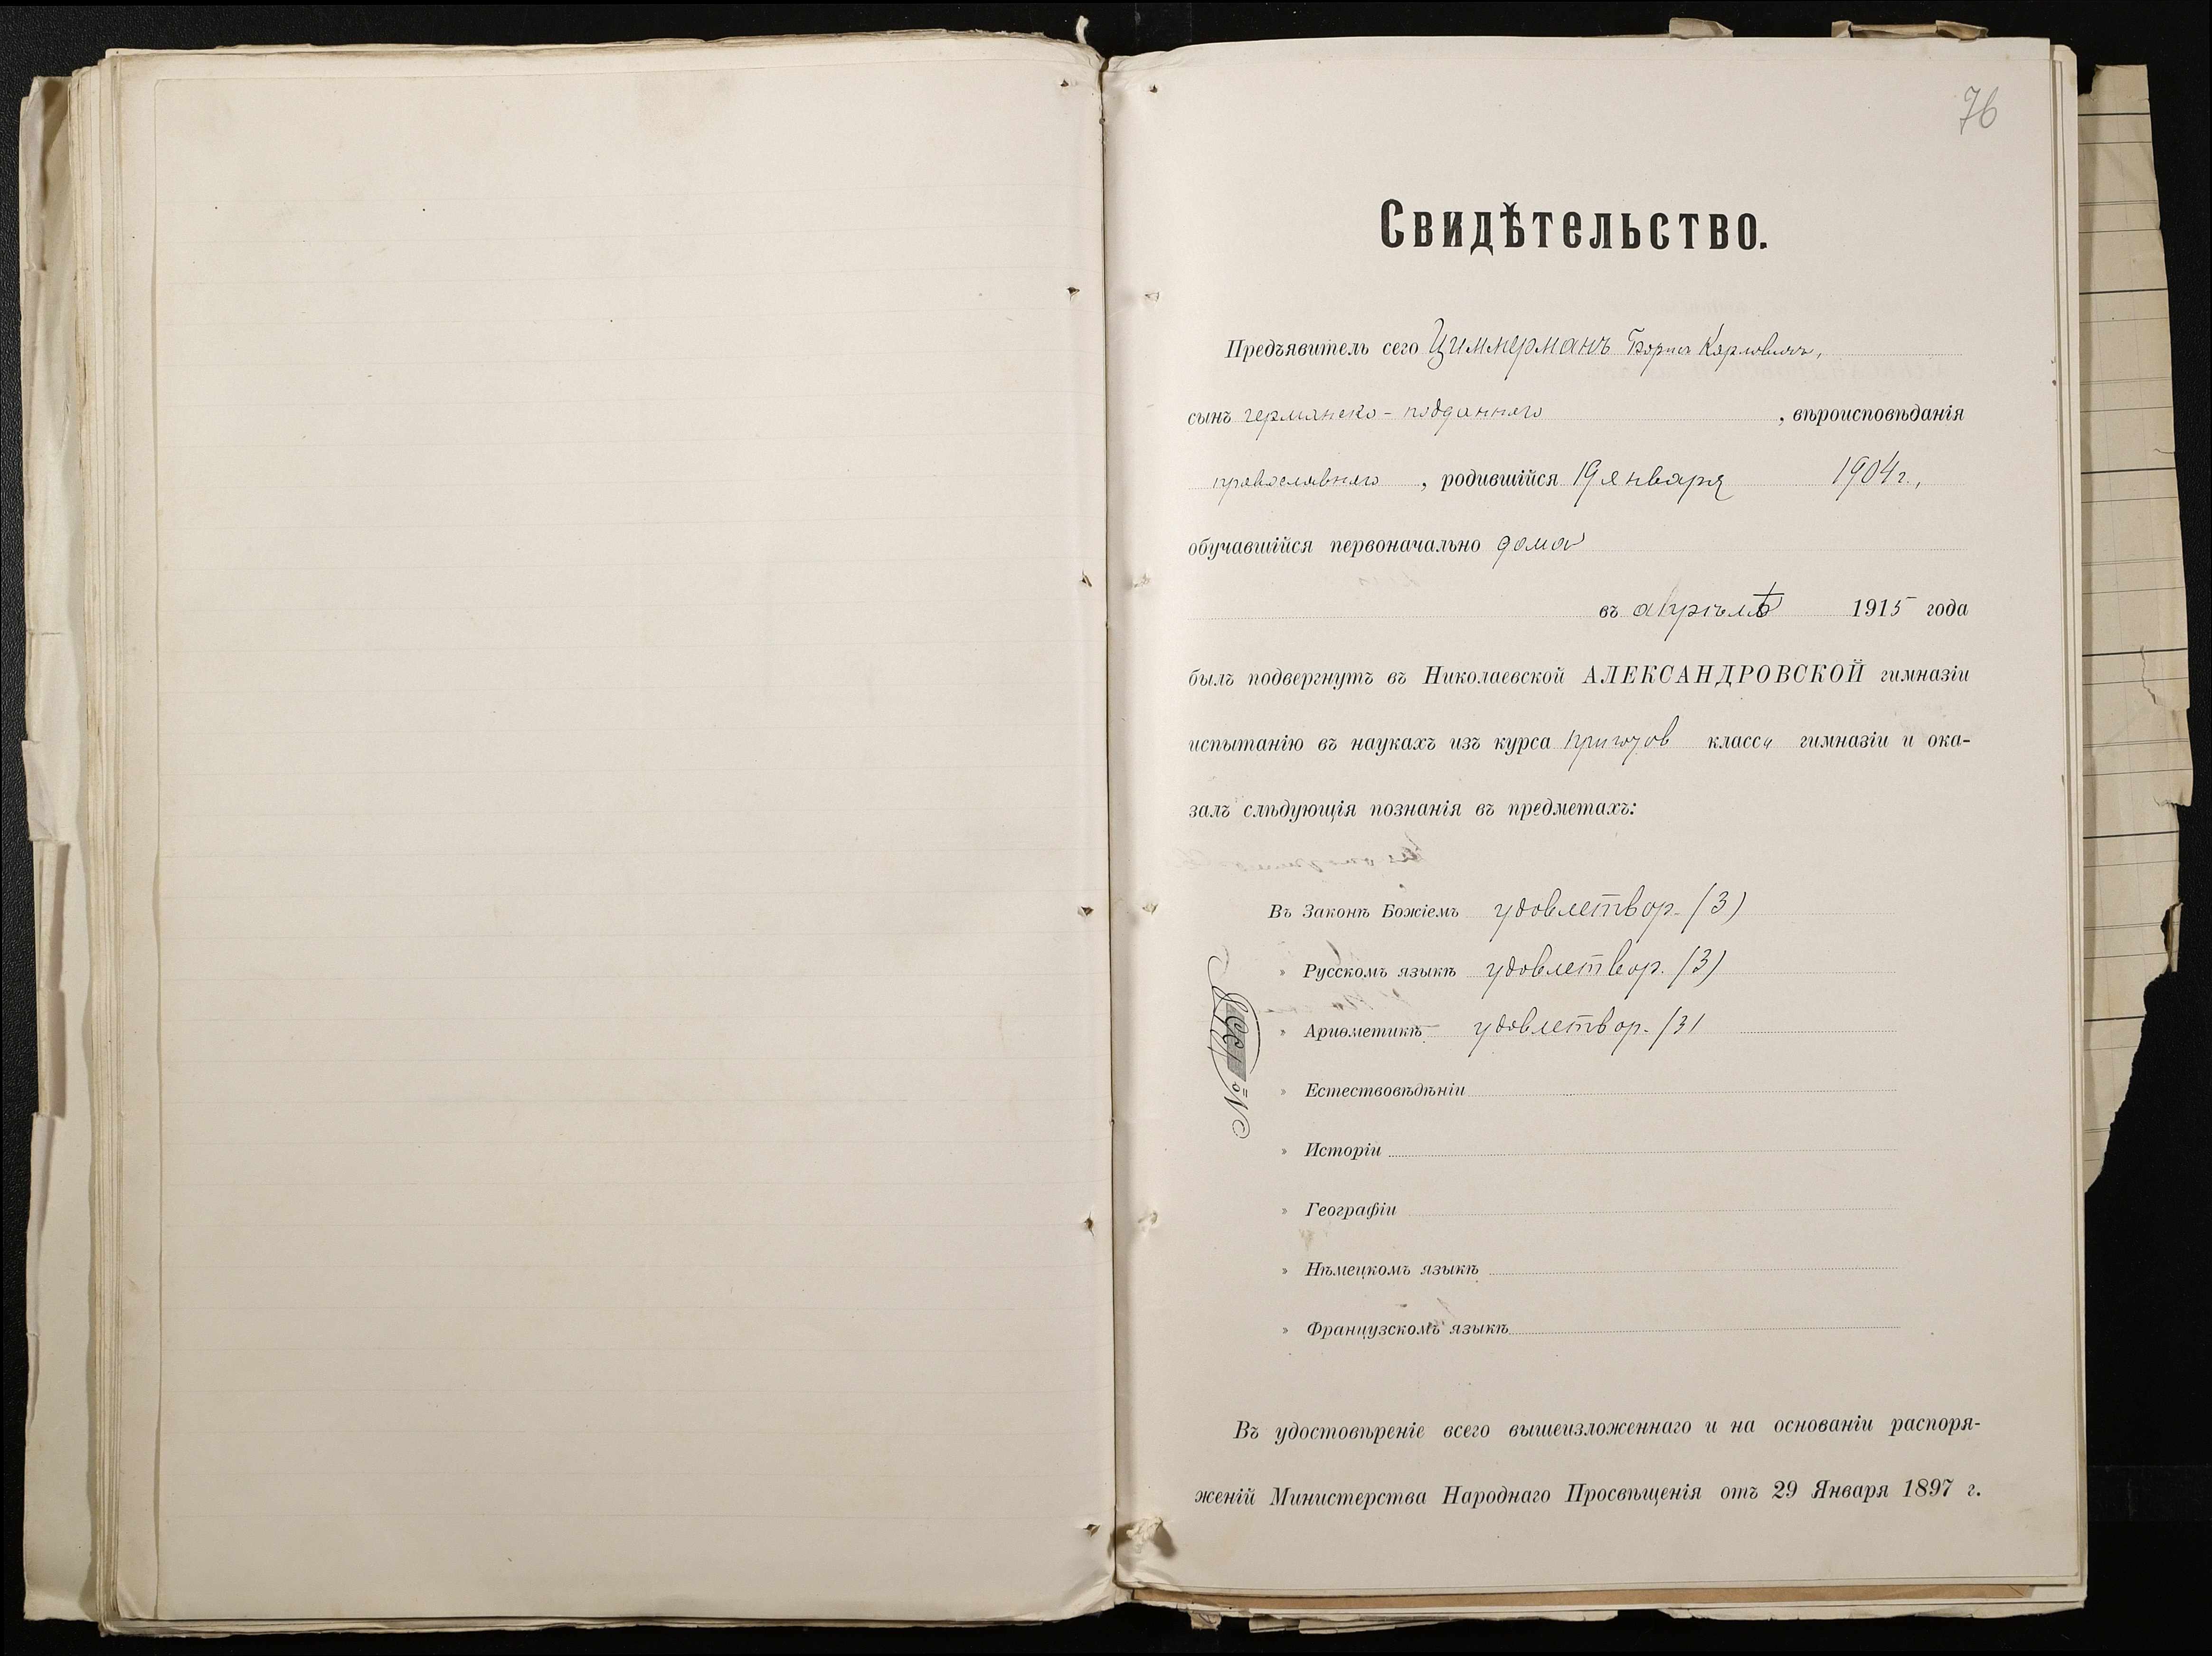 76
Свидѣтельство.
Предъявитель сего Циммерманъ Борисъ Карловичъ,
сынъ германско-подданнаго , вѣроисповѣданія
православнаго , родившійся 19 января 1904 г.,
обучавшійся первоначально дома
въ апрѣлѣ 1915 года
былъ подвергнутъ въ Николаевской АЛЕКСАНДРОВСКОЙ гимназіи
испытанію въ наукахъ изъ курса класса гимназіи и ока-
залъ слѣдующія познанія въ предметахъ:
Въ Законѣ Божіемъ удовлетвор. (3)
» Русскомъ языкѣ удовлетвор. (3)
» Ариѳметикѣ удовлетвор. (3)
» Естествовѣдѣніи
» Исторіи
» Географіи
» Нѣмецкомъ языкѣ
» Французскомъ языкѣ
Въ удостовѣреніе всего вышеизложеннаго и на основаніи распоря-
женій Министерства Народнаго Просвѣщенія отъ 29 Января 1897 г.